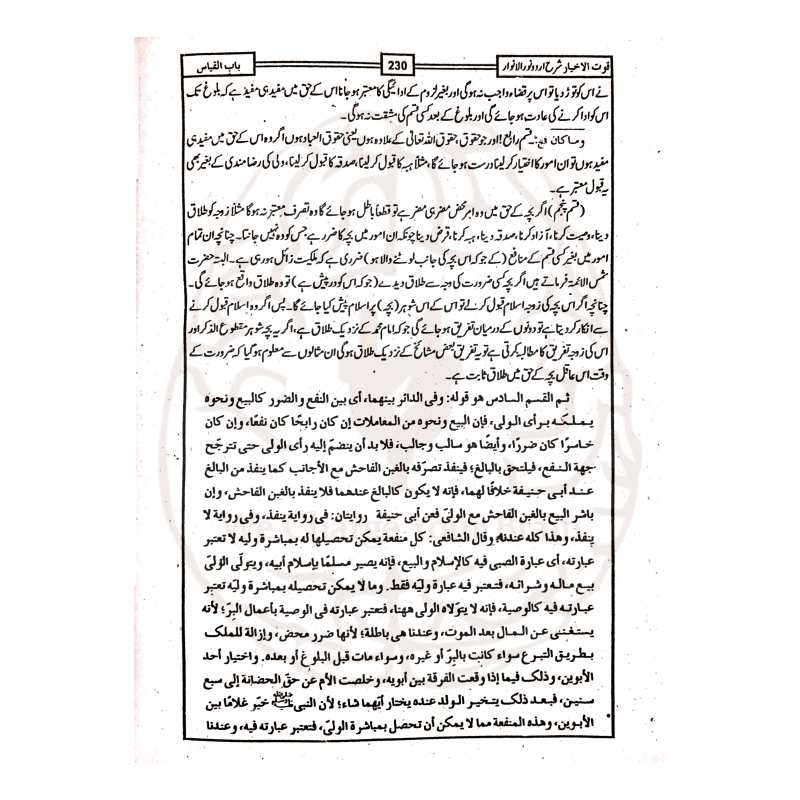 قوت الاخیار شرح اردو نور الانوار 230 باب القیاس
نے اس کو توڑ دیا تو اس پر قضاء واجب نہ ہوگی اور بغیر لزوم کے ادائیگی کا معتبر ہو جانا اس کے حق میں مفید ہی مفید ہے کہ بلوغ تک
اس کو ادا کرنے کی عادت ہو جائے گی اور بلوغ کے بعد کسی قسم کی مشقت نہ ہوگی۔
وما کان الخ:۔ قسم رابع! اور جو حقوق، حقوق اللہ تعالیٰ کے علاوہ ہوں یعنی حقوق العباد ہوں اگر وہ اس کے حق میں مفید ہی
مفید ہوں تو ان امور کا اختیار کر لینا درست ہو جائے گا، مثلاً ہبہ کا قبول کر لینا، صدقہ کا قبول کر لینا، ولی کی رضامندی کے بغیر بھی
یہ قبول معتبر ہے۔
(قسم پنجم) اگر بچہ کے حق میں وہ امر محض مضر ہی مضر ہے تو قطعاً باطل ہو جائے گا وہ تصرف معتبر نہ ہوگا مثلاً زوجہ کو طلاق
دینا، وصیت کرنا، آزاد کرنا، صدقہ دینا، ہبہ کرنا، قرض دینا چونکہ ان امور میں بچہ کا ضرر ہے جس کو وہ نہیں جانتا۔ چنانچہ ان تمام
امور میں بغیر کسی قسم کے منافع (کے جو کہ اس بچہ کی جانب لوٹنے والا ہو) ضرری ہے کہ ملکیت زائل ہو رہی ہے۔ البتہ حضرت
شمس الائمہ فرماتے ہیں اگر بچہ کسی ضرورت کی وجہ سے طلاق دیدے (جو کہ اس کو درپیش ہے) تو وہ طلاق واقع ہو جائے گی۔
چنانچہ اگر اس بچہ کی زوجہ اسلام قبول کر لے تو اس کے اس شوہر (بچہ) پر اسلام پیش کیا جائے گا۔ پس اگر وہ اسلام قبول کرنے
سے انکار کر دیتا ہے تو دونوں کے درمیان تفریق ہو جائے گی جو کہ امام محمد کے نزدیک طلاق ہے، اگر یہ بچہ شوہر مقطوع الذکر اور
اس کی زوجہ تفریق کا مطالبہ کرتی ہے تو یہ تفریق بعض مشائخ کے نزدیک طلاق ہوگی ان مثالوں سے معلوم ہو گیا کہ ضرورت کے
وقت اس عاقل بچہ کے حق میں طلاق ثابت ہے۔
ثم القسم السادس هو قوله: وفى الدائر بينهما، أى بين النفع والضرر كالبيع ونحوه
يملكه برأى الولى، فإن البيع ونحوه من المعاملات إن كان رابحًا كان نفعًا، وإن كان
خاسرًا كان ضررًا، وأيضًا هو سالب وجالب، فلا بد أن ينضمّ إليه رأى الولى حتى تترجّح
جهة النفع، فيلتحق بالبالغ؛ فينفذ تصرّفه بالغبن الفاحش مع الأجانب كما ينفذ من البالغ
عند أبى حنيفة خلافًا لهما، فإنه لا يكون كالبالغ عندهما فلا ينفذ بالغبن الفاحش، وإن
باشر البيع بالغبن الفاحش مع الولىّ فعن أبى حنيفة روايتان: فى رواية ينفذ، وفى رواية لا
ينفذ، وهذا كله عندنا؛ وقال الشافعى: كل منفعة يمكن تحصيلها له بمباشرة وليه لا تعتبر
عبارته، أى عبارة الصبى فيه كالإسلام والبيع، فإنه يصير مسلمًا بإسلام أبيه، ويتولّى الولىّ
بيع ماله وشرائه، فتعتبر فيه عبارة وليّه فقط. وما لا يمكن تحصيله بمباشرة وليّه تعتبر
عبارته فيه كالوصية، فإنه لا يتولاه الولى ههنا، فتعتبر عبارته فى الوصية بأعمال البِرّ؛ لأنه
يستغنى عن المال بعد الموت، وعندنا هى باطلة؛ لأنها ضرر محض، وإزالة للملك
بطريق التبرع سواء كانت بالبِرّ أو غيره، وسواء مات قبل البلوغ أو بعده. واختيار أحد
الأبوين، وذلك فيما إذا وقعت الفرقة بين أبويه، وخلصت الأم عن حقّ الحضانة إلى سبع
سنين، فبعد ذلك يتخير الولد عنده يختار أيّهما شاء؛ لأن النبى ﷺ خيّر غلامًا بين
الأبوين، وهذه المنفعة مما لا يمكن أن تحصل بمباشرة الولىّ، فتعتبر عبارته فيه، وعندنا